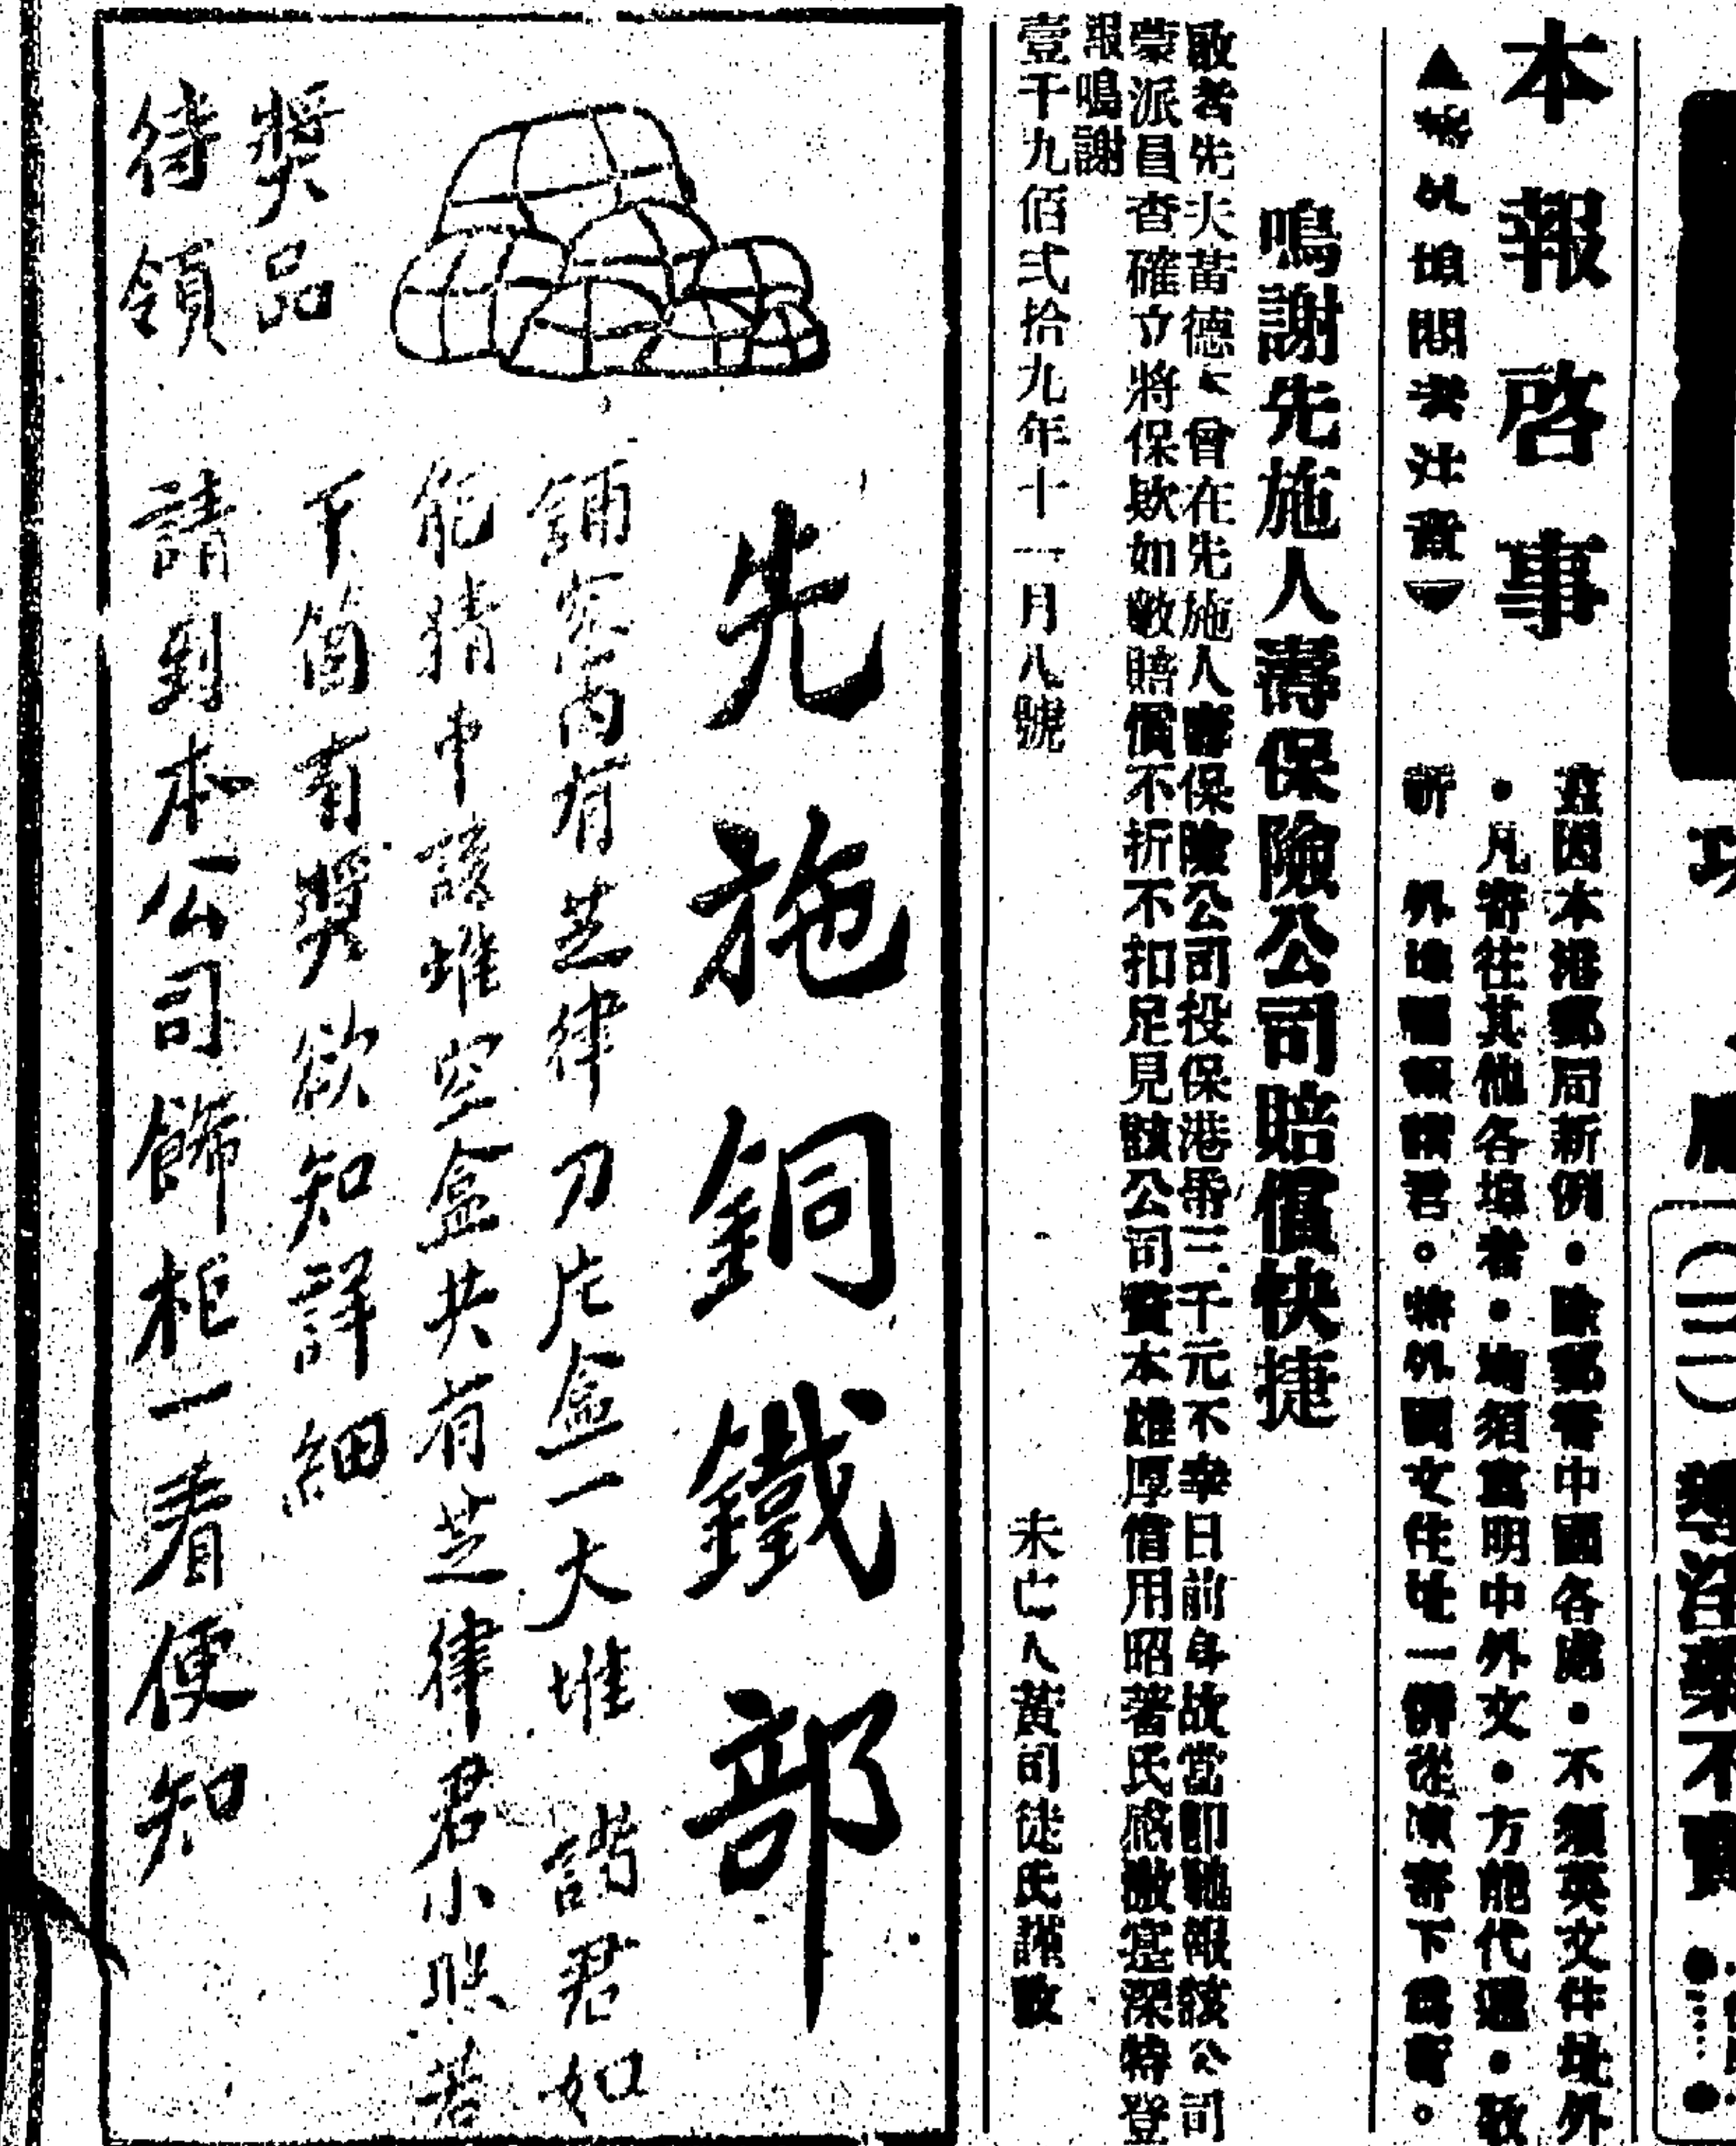 本報啓事
外埠閱者注意
茲因本港郵局新例・除郵寄中國各處・不須英文住址外
・凡寄往其他各埠者・均須寫明中外文・方能代遞・敬
祈 外埠閱報諸君。將外國文住址一併從速寄下爲荷。
鳴謝先施人壽保險公司賠償快捷
敬者先夫黃德 曾在先施人壽保險公司投保港幣三千元不幸日前身故當卽馳報該公司
蒙派員查確立將保欵如數賠償不折不扣足見該公司資本雄厚信用昭著氏感激寔深特登
報鳴謝
壹千九佰弍拾九年十一月八號
未亡人黃司徒氏謹啟
先施銅鐵部
鋪窓內有芝律刀片盒一大堆 諸君如
能猜中該堆空盒共有芝律君小照若
干箇有獎欲知詳細
請到本公司飾柜一看便知
獎品
待領